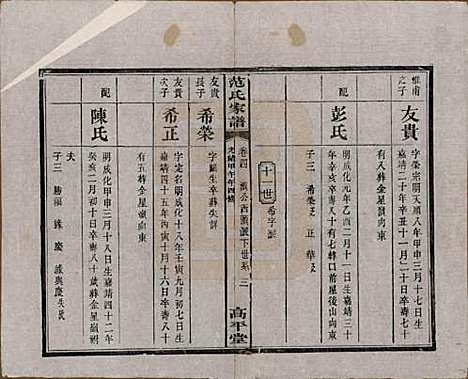 惟甫之子
友貴
字榮宛明天順八年甲申三月十七日生
嘉靖二十年辛丑十一月十一日卒壽七十
有八葬金星嶺向東
配
彭氏
明成化元年乙酉二月十一日生嘉靖四十
年辛酉卒壽八十有七轉口前星後山向東
子三 希榮 正 華
十一世
希字派
范氏家譜
卷四
公西派下世系
三
光緒甲午年四修
高平堂
友貴長子
希榮
字 生卒葬失詳
友貴次子
希正
字定名明成化十八年壬寅九月初七日生
嘉靖四十五年丙寅十月十六日卒壽八十
有五葬金星嶺向東
配
陳氏
明成化甲申三月十八日生嘉靖四十二年
癸亥二月初十日卒壽八十歲葬金星嶺祔
夫
子三 勝 福 錄 慶 錄與慶失民